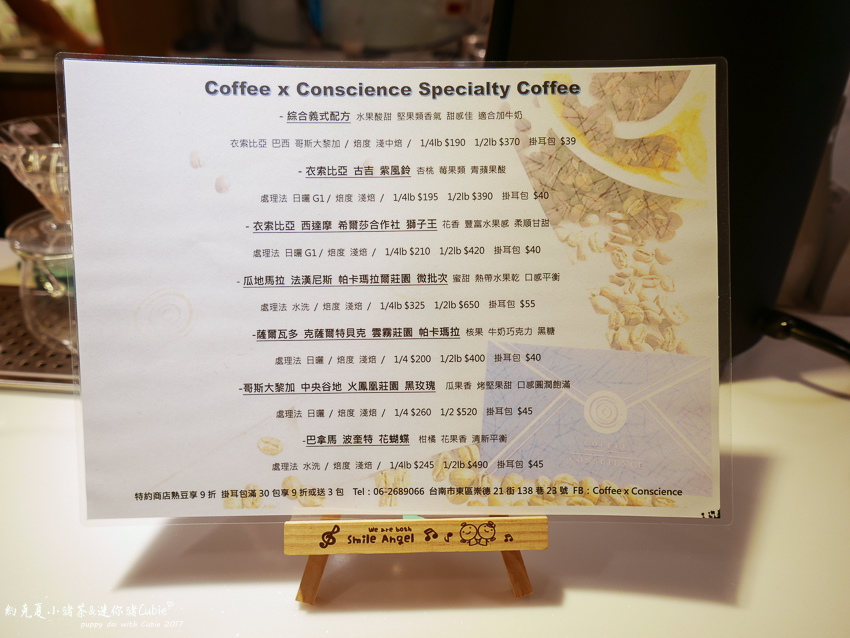 Coffee x Conscience Specialty Coffee
- 綜合義式配方 水果酸甜 堅果類香氣 甜感佳 適合加牛奶
衣索比亞 巴西 哥斯大黎加 / 焙度 淺中焙 / 1/4lb $190 1/2lb $370 掛耳包 $39
- 衣索比亞 古吉 紫風鈴 杏桃 莓果類 青蘋果酸
處理法 日曬 G1 / 焙度 淺焙 / 1/4lb $195 1/2lb $390 掛耳包 $40
- 衣索比亞 西達摩 希爾莎合作社 獅子王 花香 豐富水果感 柔順甘甜
處理法 日曬 G1 / 焙度 淺焙 / 1/4lb $210 1/2lb $420 掛耳包 $40
- 瓜地馬拉 法漢尼斯 帕卡瑪拉爾莊園 微批次 蜜甜 熱帶水果乾 口感平衡
處理法 水洗 / 焙度 淺焙 / 1/4lb $325 1/2lb $650 掛耳包 $55
-薩爾瓦多 克薩爾特貝克 雲霧莊園 帕卡瑪拉 核果 牛奶巧克力 黑糖
處理法 日曬 / 焙度 淺焙 / 1/4 $200 1/2lb $400 掛耳包 $40
-哥斯大黎加 中央谷地 火鳳凰莊園 黑玫瑰 瓜果香 烤堅果甜 口感圓潤飽滿
處理法 日曬 / 焙度 淺焙 / 1/4 $260 1/2 $520 掛耳包 $45
-巴拿馬 波奎特 花蝴蝶 柑橘 花果香 清新平衡
處理法 水洗 / 焙度 淺焙 / 1/4lb $245 1/2lb $490 掛耳包 $45
特約商店熟豆享 9 折 掛耳包滿 30 包享 9 折或送 3 包 Tel：06-2689066 台南市東區崇德 21 街 138 巷 23 號 FB：Coffee x Conscience
We are both
Smile Angel
約克夏小諸葛&迷你豬Cubie
puppy dei with Cubie 2017